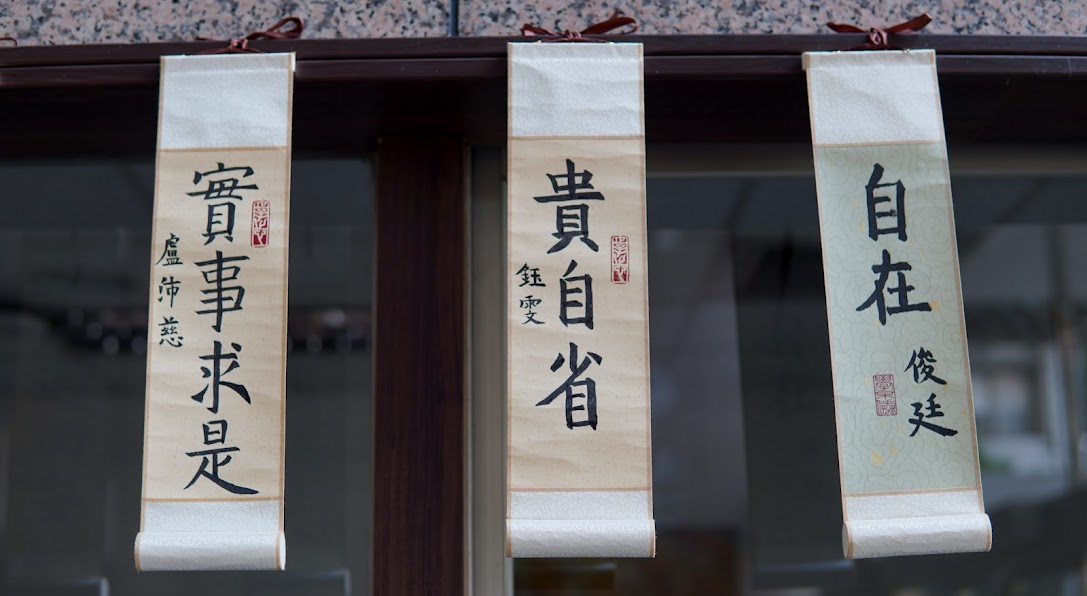 實事求是
盧沛慈
貴自省
鈺雯
自在
俊廷